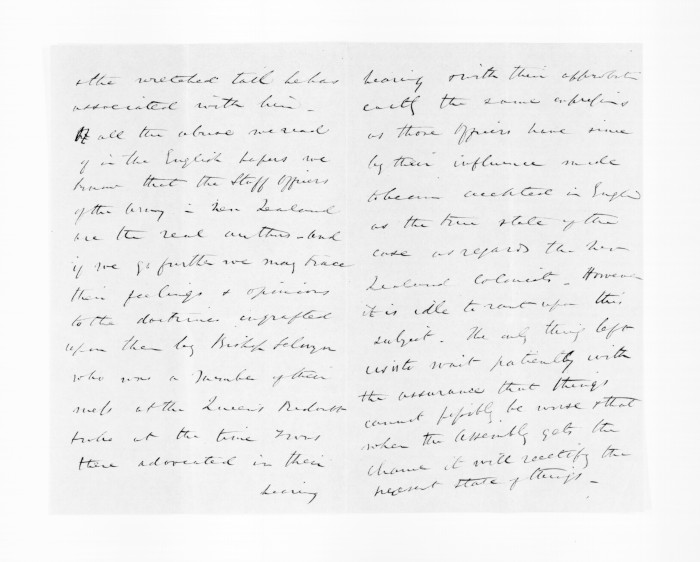 & the wretched tail he has
associated with him -
Of all the abuse we read
of in the English papers we
know that the Staff Officers
of the Army in New Zealand
are the real authors - and
if we go further we may trace
their feelings & opinions
to the doctrines engrafted
upon them by Bishop Selwyn
who was a member of their
mess at the Queen's Redoubt
& who at the time I was
there advocated in their
hearing
hearing & with their approbation
exactly the same
as those Officers have since
by their influence made
to become accepted in England
as the true state of the
case as regards the New
Zealand Colonists - However
it is idle to rant upon this
subject. The only thing left
us is to wait patiently with
the assurance that things
cannot possibly be worse & that
when the Assembly gets the
chance it will rectify the
present state of things -